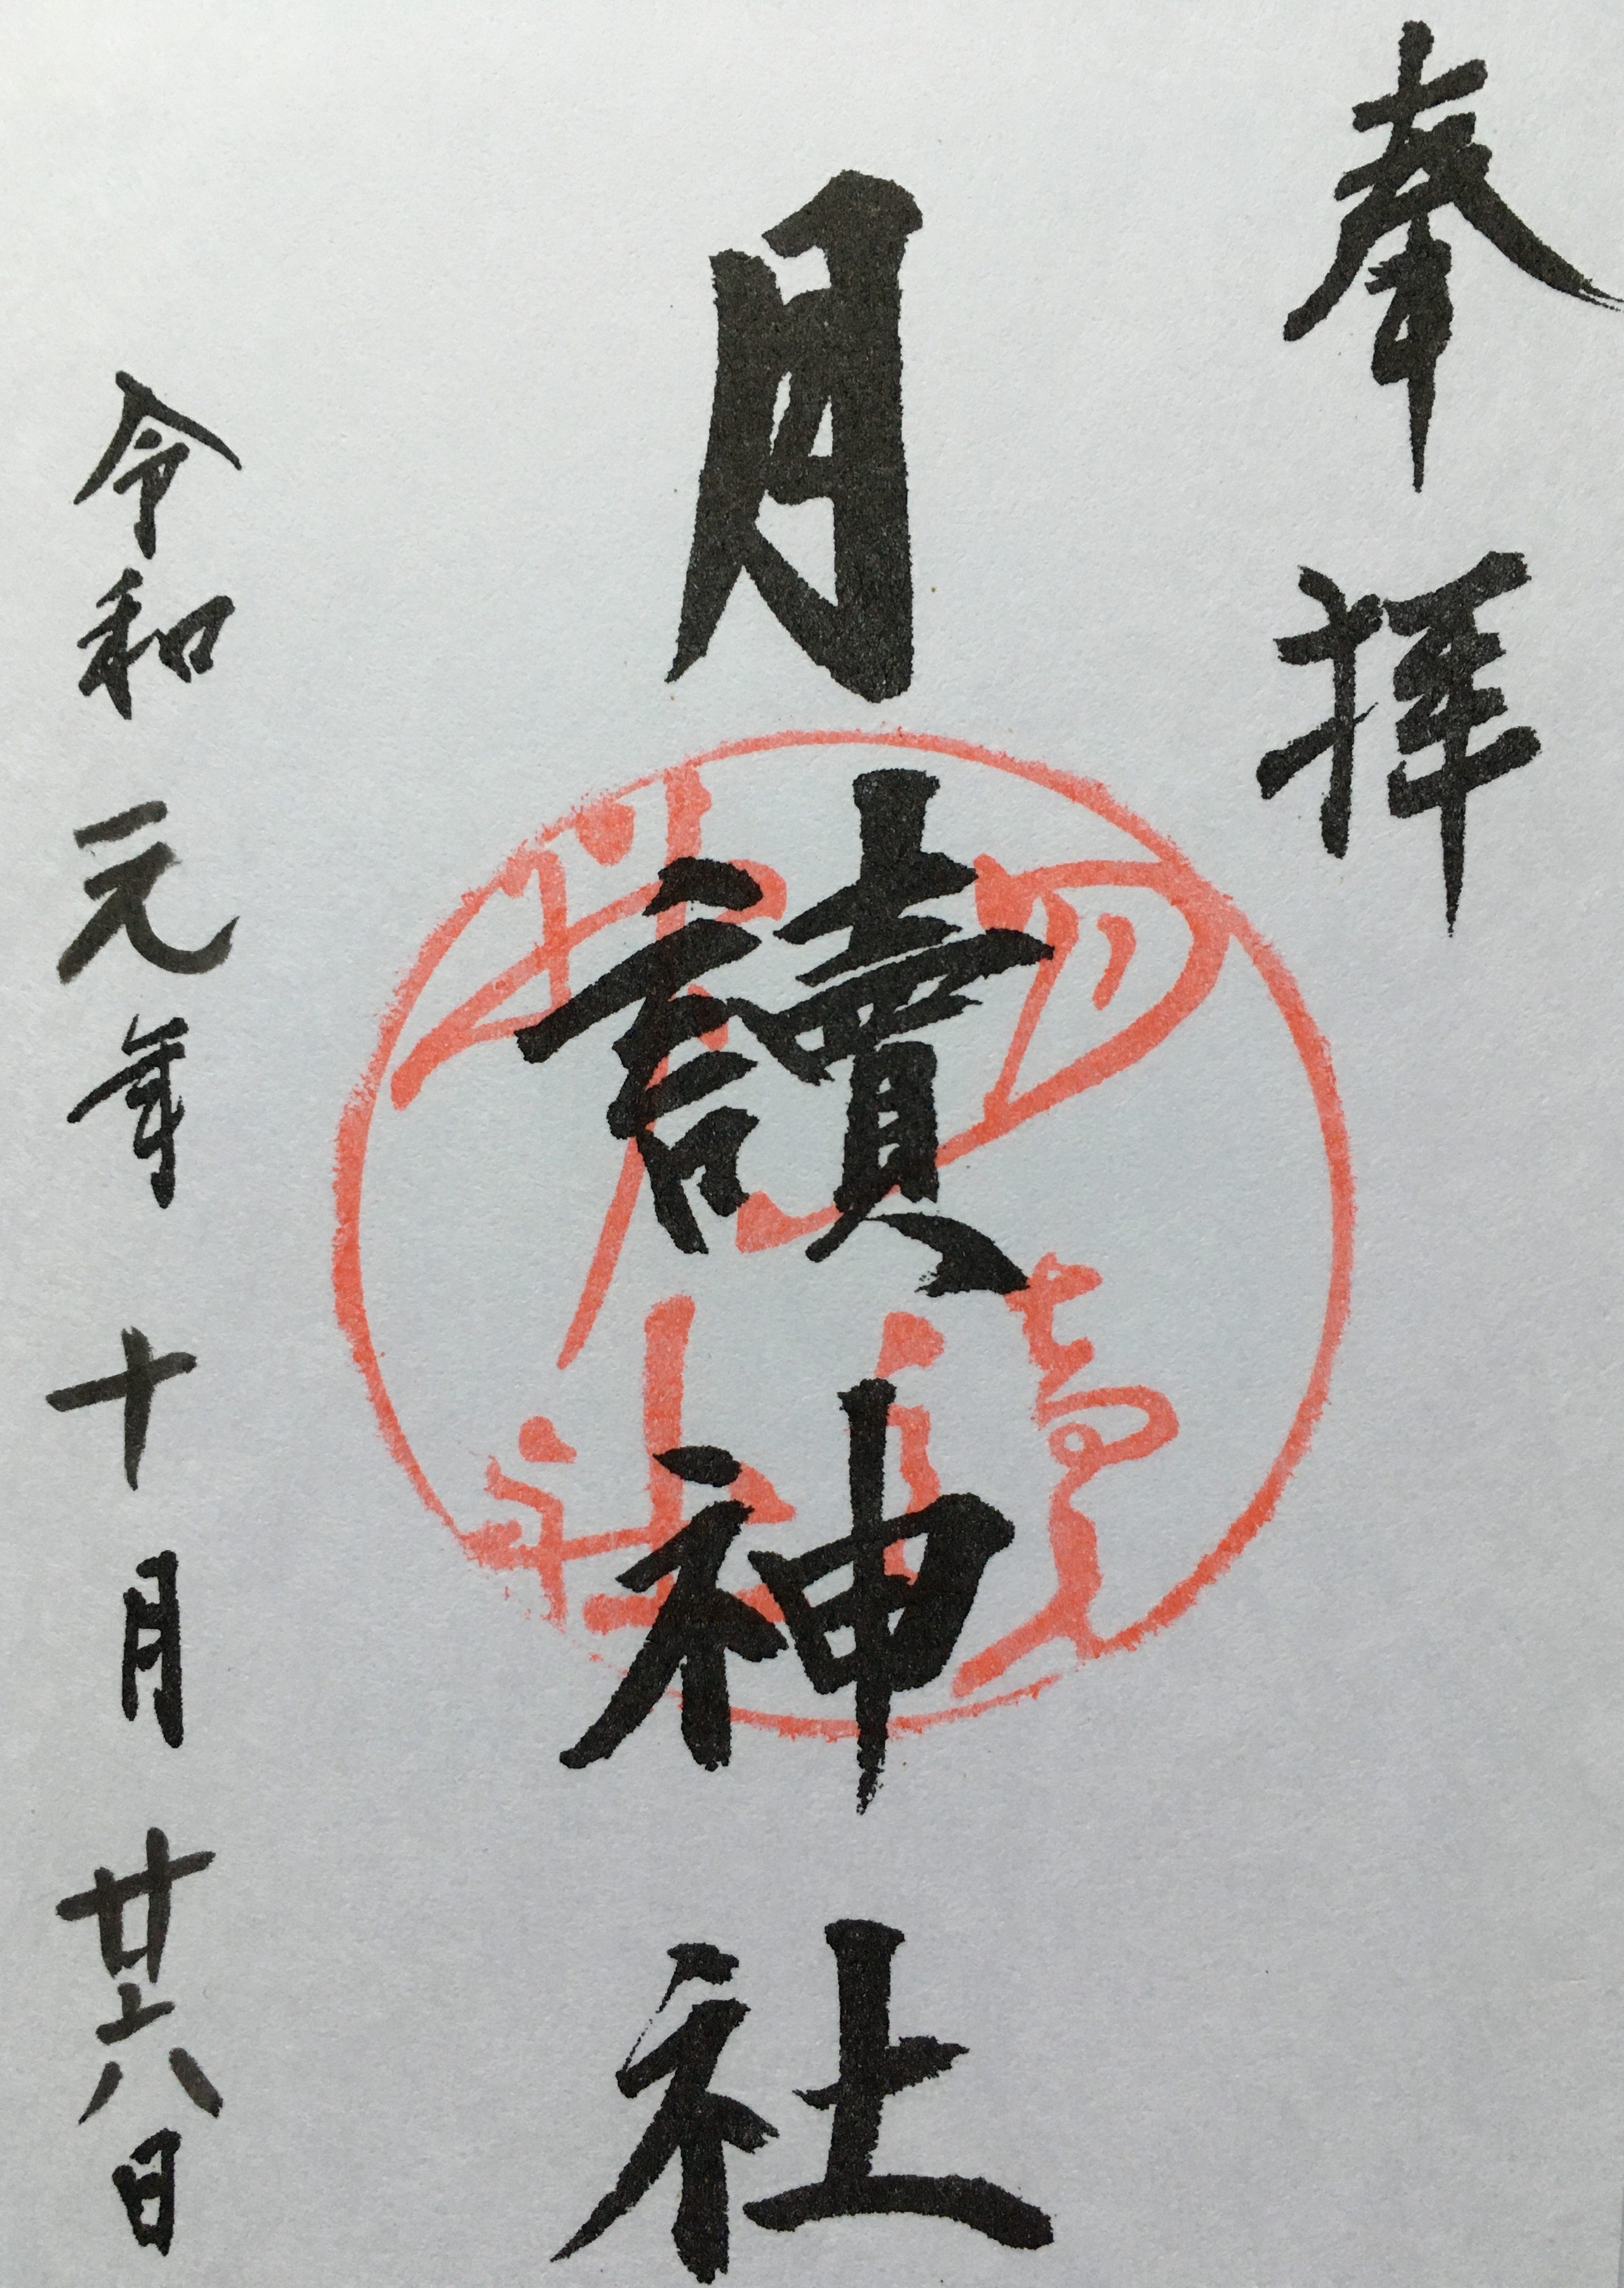 奉拝
月讀神社
月讀神社
令和元年十月廿六日